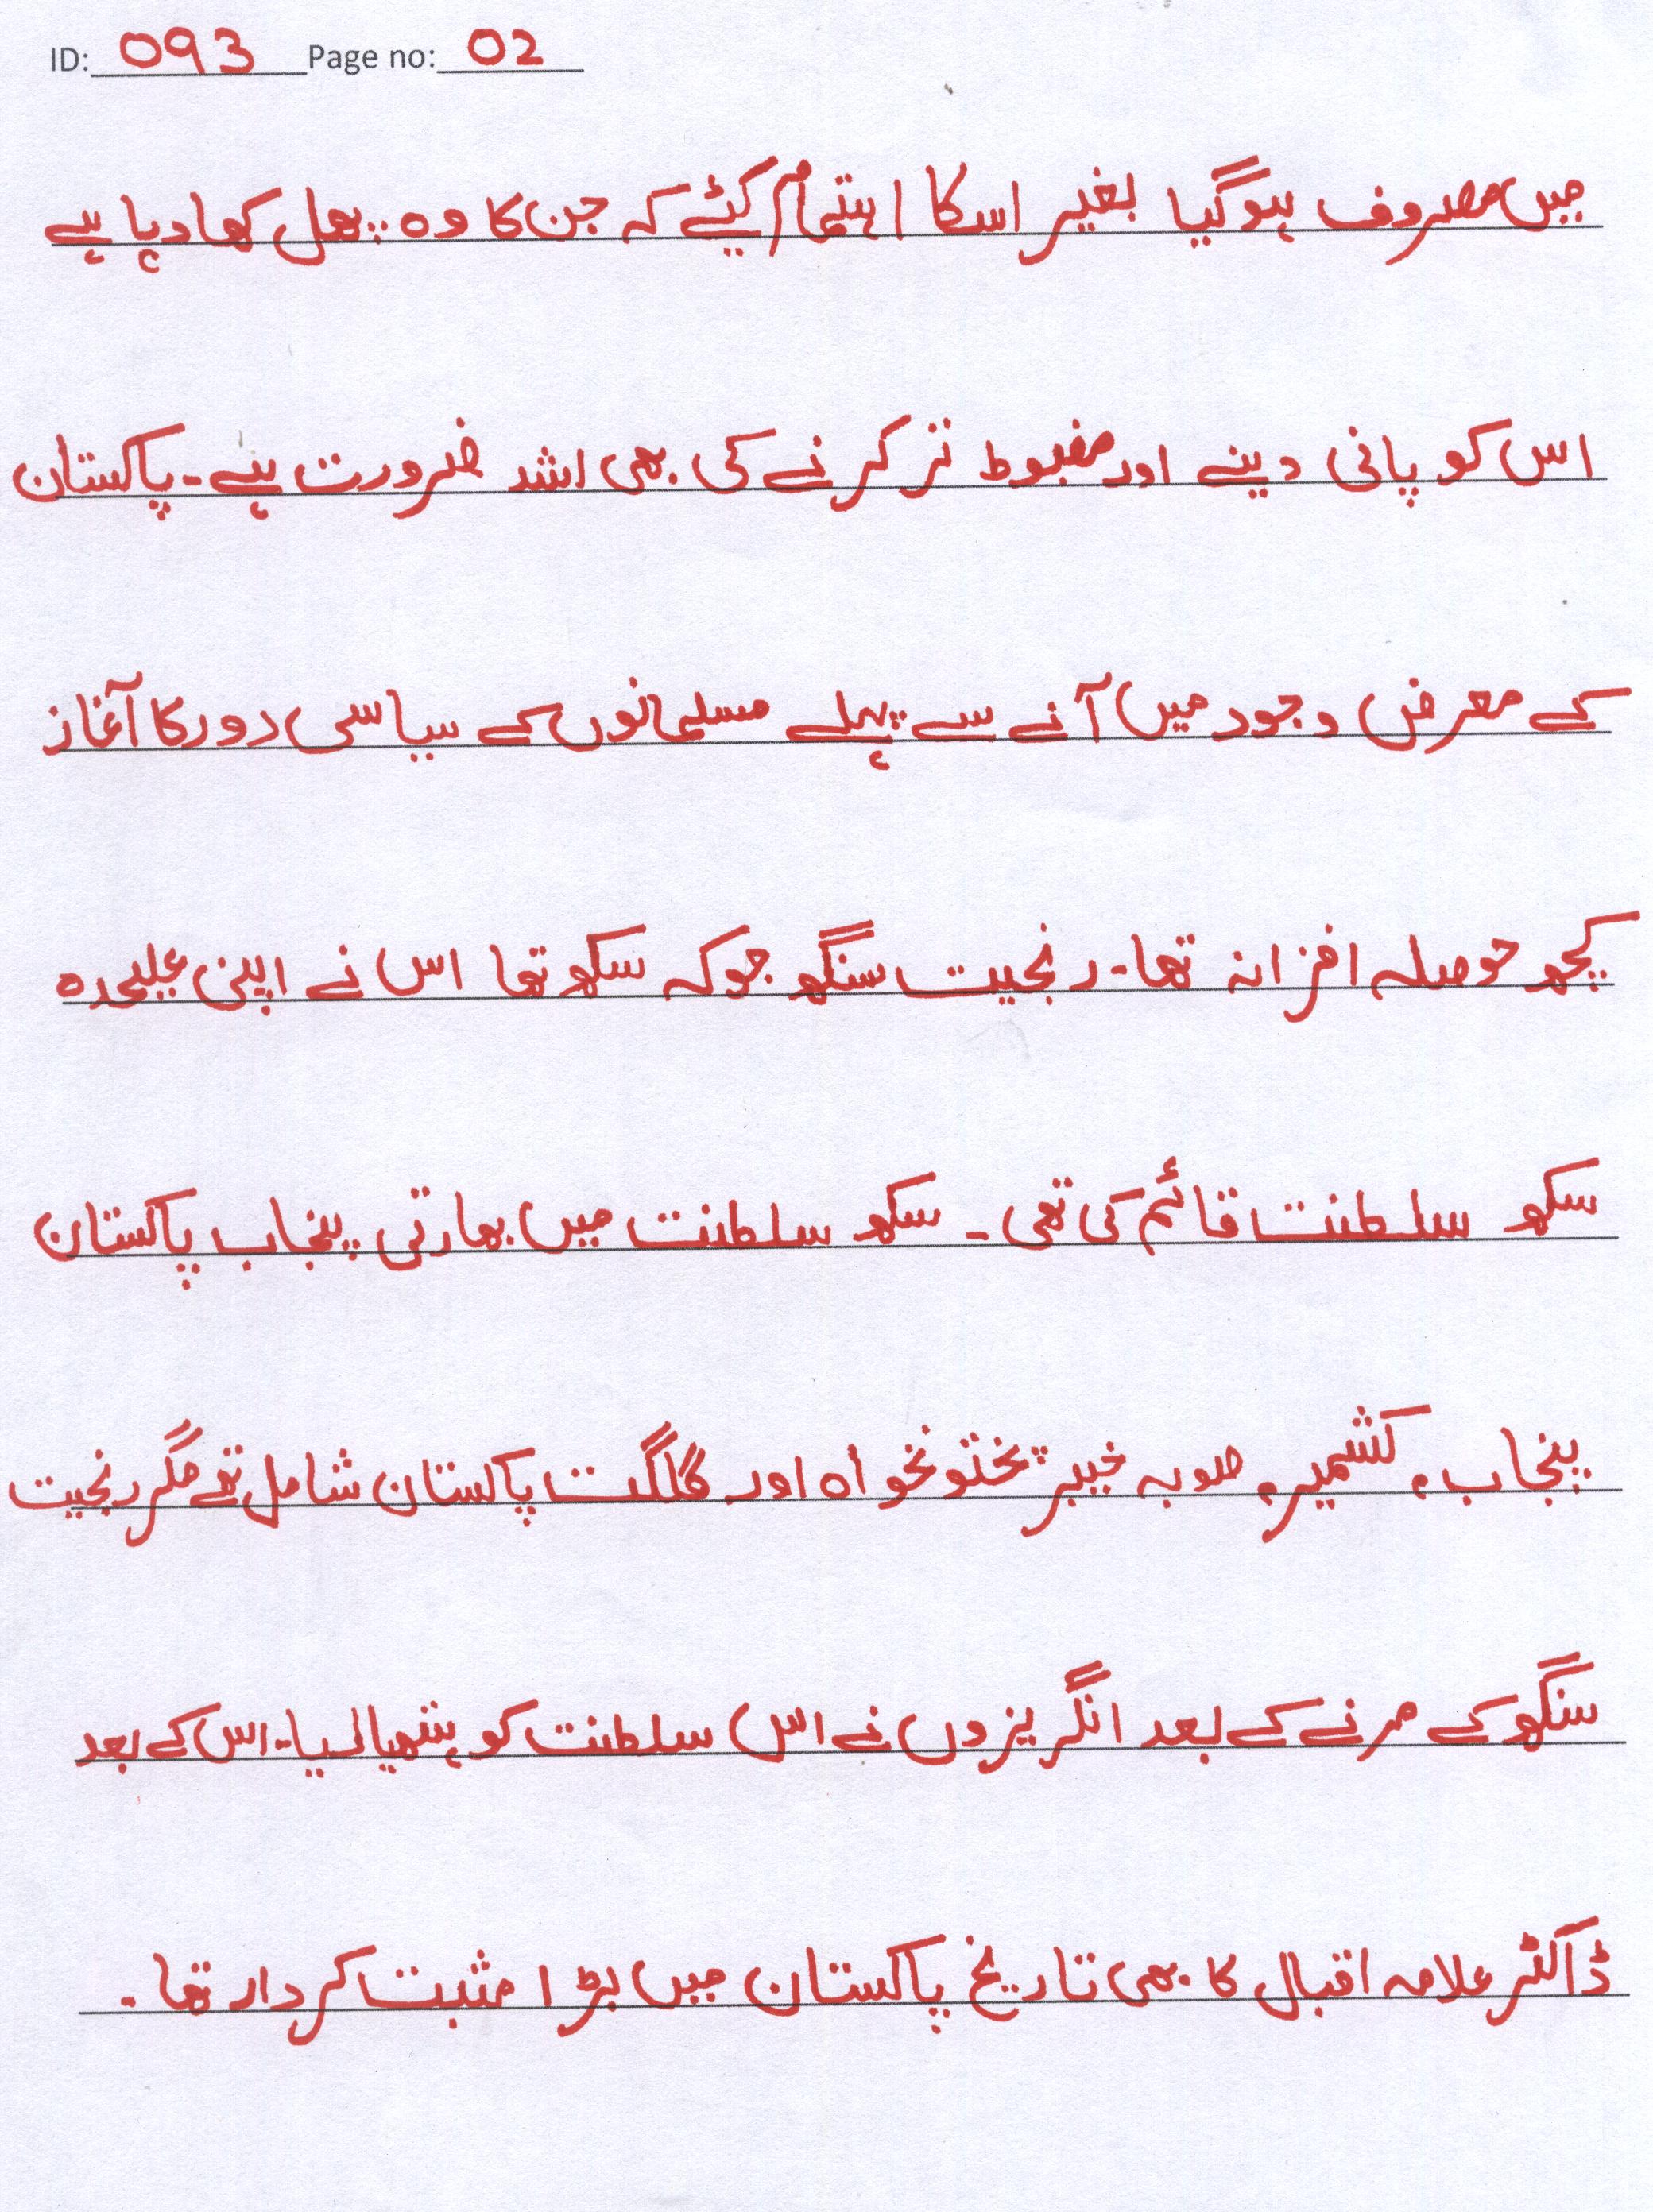 ID: 093 Page no: 02
میں مصروف ہوگیا بغیر اسکا اہتمام کیئے کہ جن کا وہ پھل کھا دہا ہے
اس کو پانی دینے اور مضبوط تر کرنے کی بھی اشد ضرورت ہے۔ پاکستان
کے معرض وجود میں آنے سے پہلے مسلمانوں کے سیاسی دور کا آغاز
کچھ حوصلہ افزا نہ تھا۔ رنجیت سنگھ جوکہ سکھ تھا اس نے اپنی علیحدہ
سکھ سلطنت قائم کی تھی ۔ سکھ سلطنت میں بھارتی پنجاب پاکستان
پنجاب، کشمیر، صوبہ خیبر پختونخواہ اور گلگت پاکستان شامل تھے مگر رنجیت
سنگھ کے مرنے کے بعد انگریزوں نے اس سلطنت کو ہتھیا لیا۔ اس کے بعد
ڈاکٹر علامہ اقبال کا بھی تاریخ پاکستان میں بڑا مثبت کردار تھا ۔